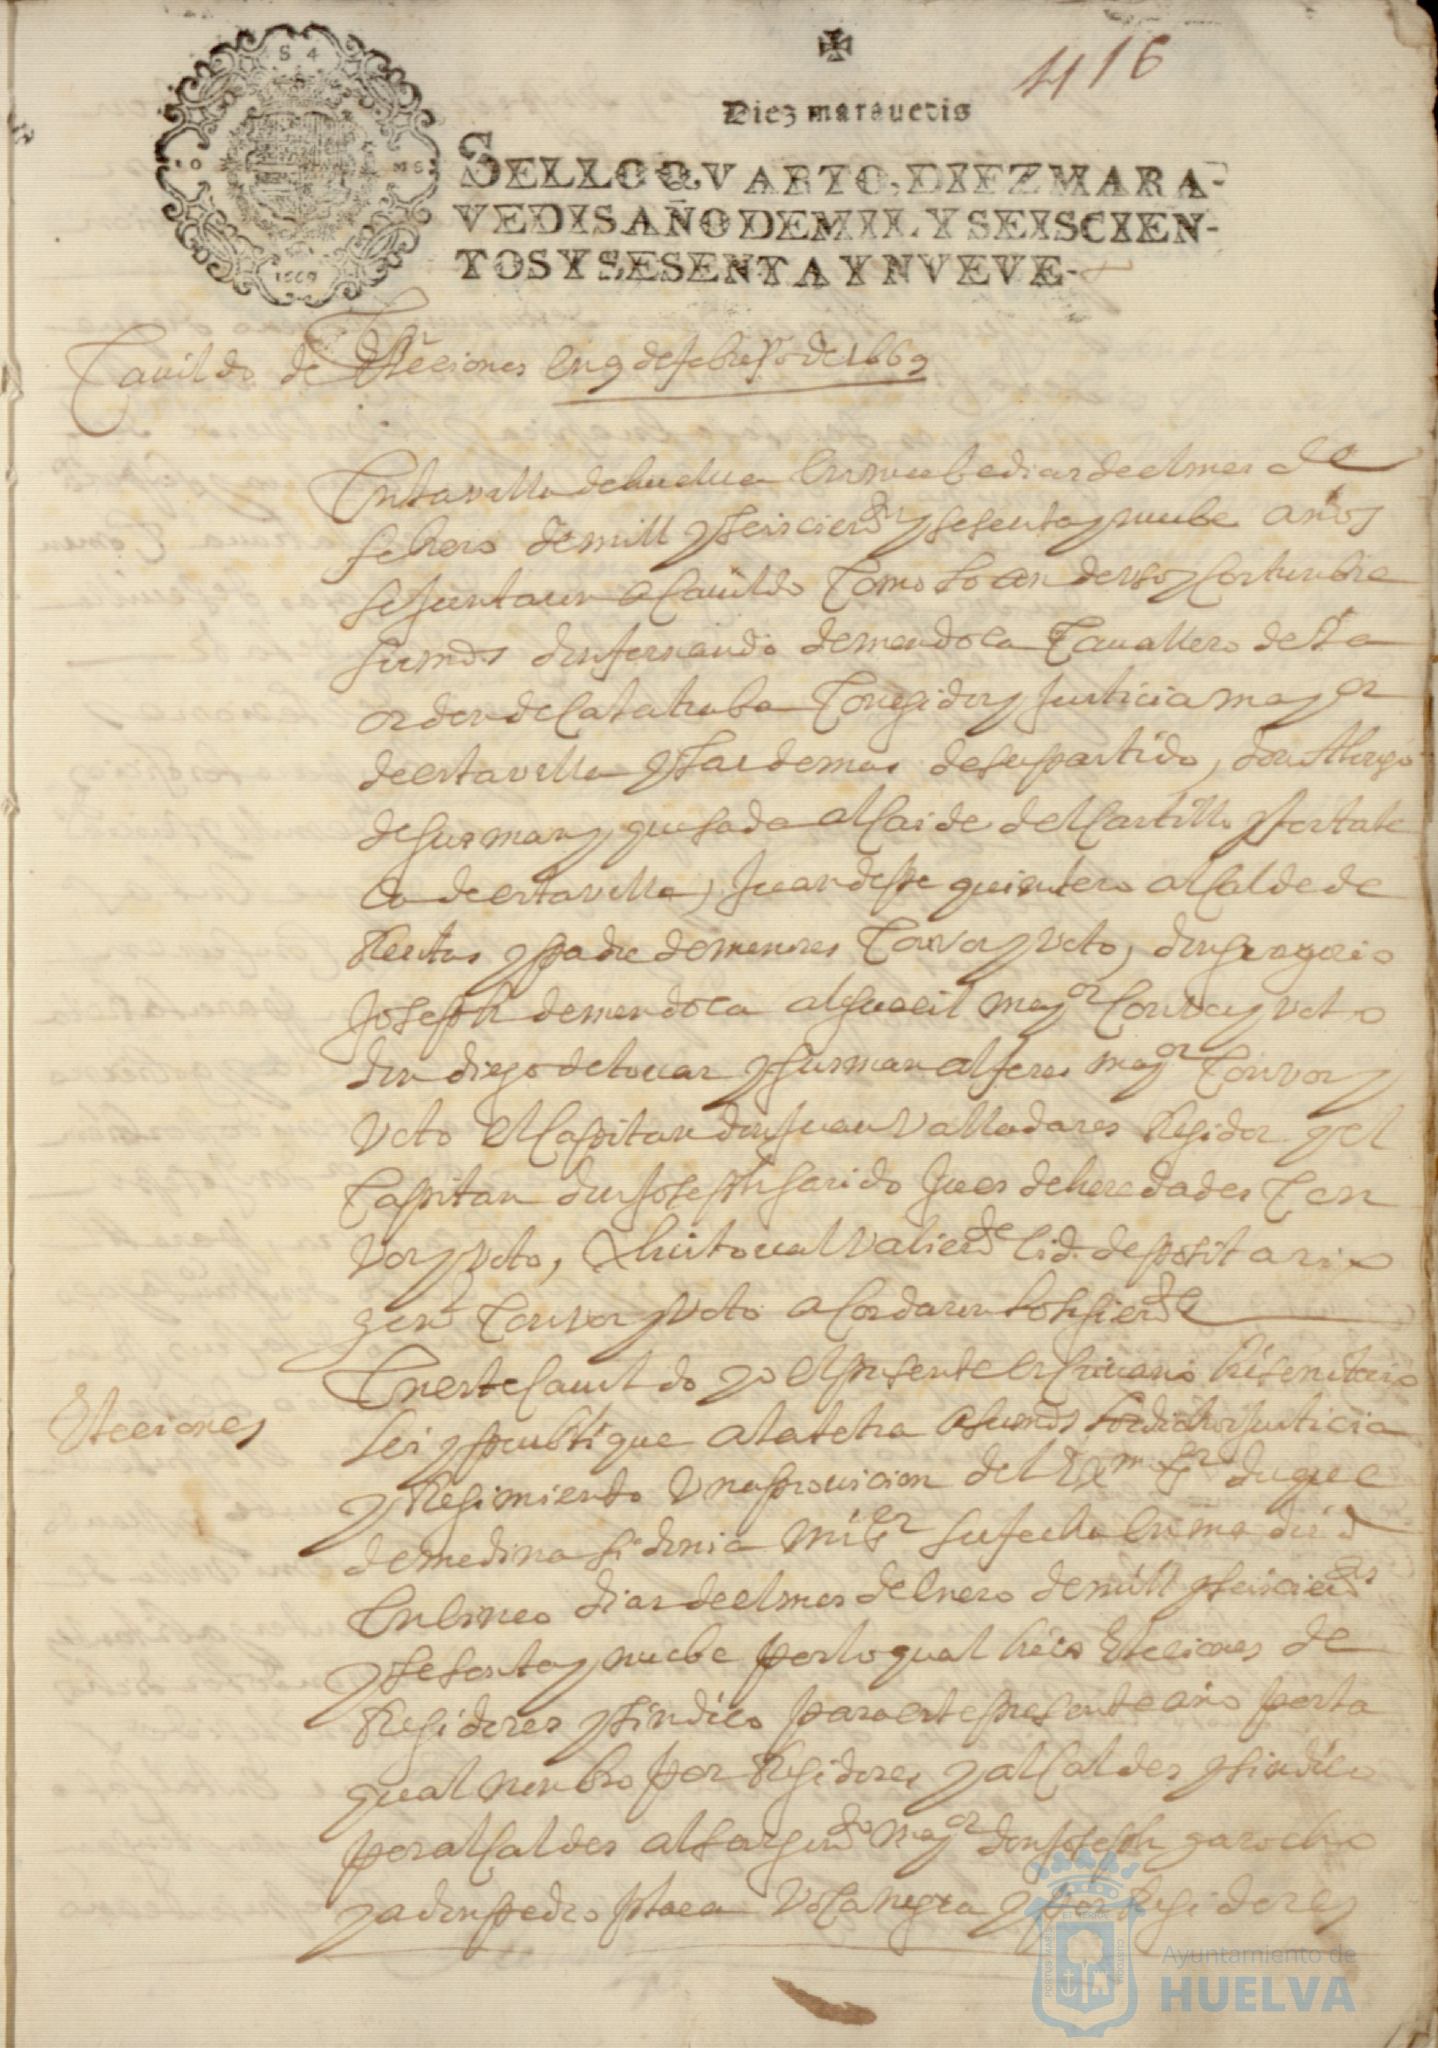 S 4
1669
416
Diez marauedis
SELLO QVARTO, DIEZ MARA-
VEDIS AÑO DE MIL Y SEISCIEN-
TOS Y SESENTA Y NVEVE-
Cauildo de Eleciones en 9 de febrero de 1669
En la villa de huelua en nuebe dias de el mes de
febrero de mill y seiscientos y sesenta y nuebe años
se juntaron a Cauildo Como lo an de uso y Costunbre
sus mds don fernando de mendoca Cauallero de la
orden de Calatraba Coregidor y justicia mayor
de esta villa y las demas de su partido, don
de gusman y quesada alcaide del Castillo y fortale
ca de esta villa, Juan quintero alcalde de
Rentas y padre de menores Con vos y voto, don gregorio
Joseph de mendoca alguacil mayor Con vos y voto
don diego de touar y gusman alferes mayor Con vos y
voto el Capitan don juan Valladares Regidor y el
Capitan don joseph garido jues de heredades Con
vos y voto, Christoual Valiente depositario
genl Con vos y voto acordaron lo siguiente
Eleciones
En este Cauildo yo el presente escriuano
lei y publique a la letra a sus mds los dichos justicia
y Regimiento una prouicion del Exmo Sr duque
de medina sidonia mi sr su fecha en madrid
en cinco dias de el mes de enero de mill y seiscientos
y sesenta y nuebe por lo qual hico Eleciones de
Regidores y sindico para este presente año por la
qual nonbro por Regidores y alcaldes y sindico
por alcaldes al sargento mayor don joseph garocho
y a don pedro y por Regidores
Ayuntamiento de
HUELVA